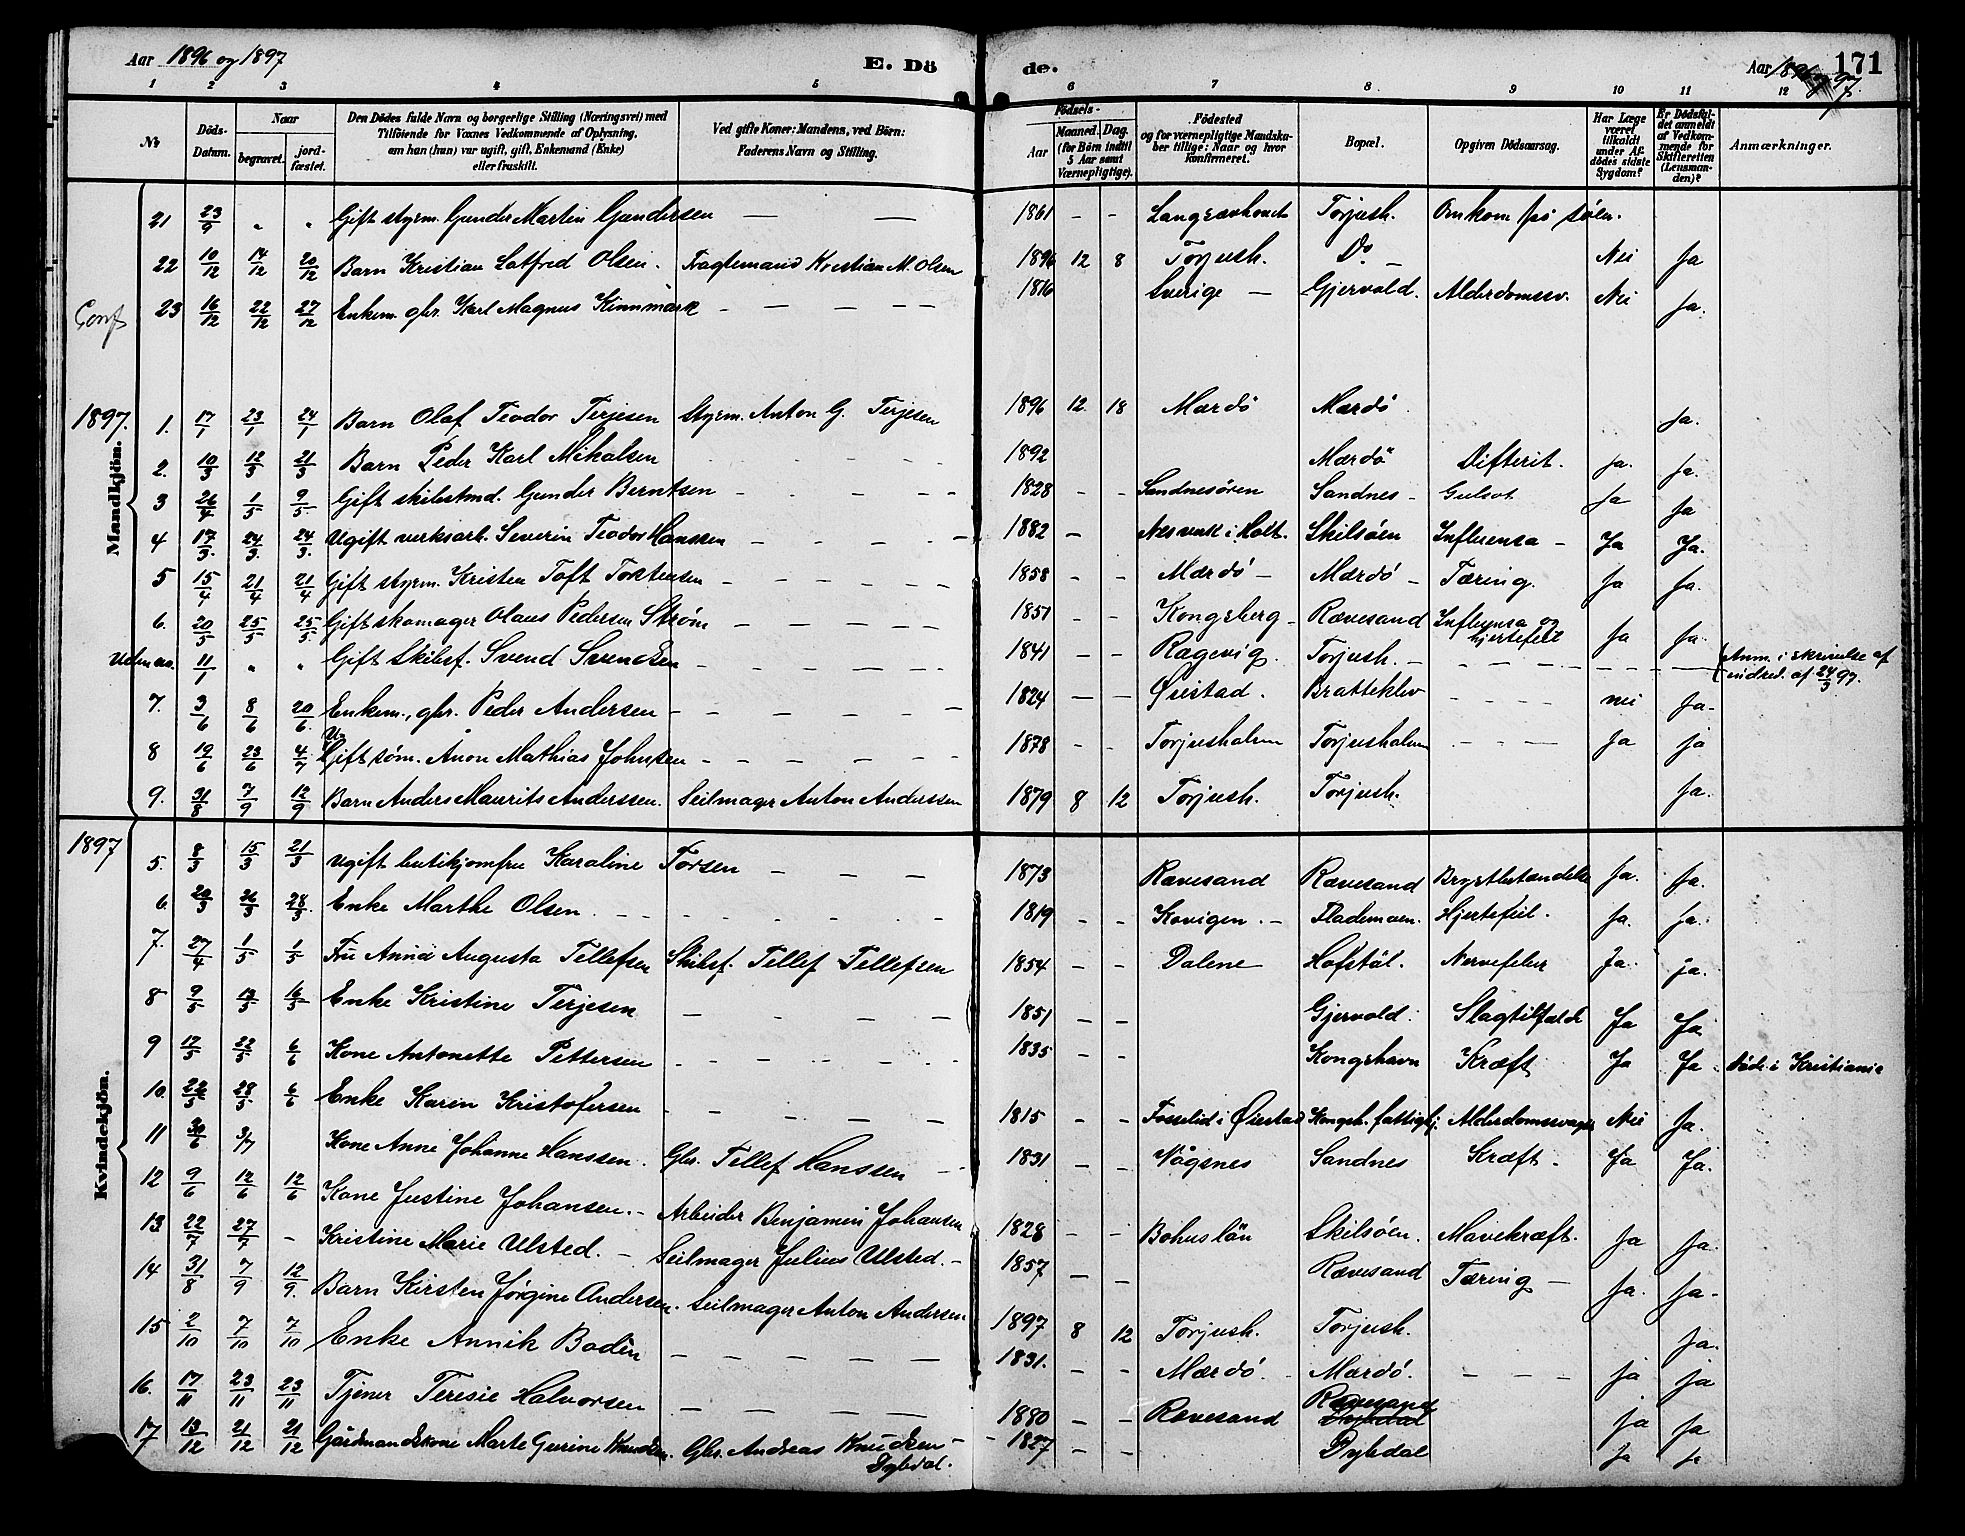 Aar 1896 og 1897 E. Dö de. Aar 1896 og 97. 171
1 2 3 4 5 6 7 8 9 10 11 12
No Döds-Datum. Naar begravet. jordfæstet. Den Dödes fulde Navn og borgerlige Stilling (Næringsvei) med Tilföiende for Voxnes Vedkommende af Oplysning, om han (hun) var ugift, gift, Enkemand (Enke) eller fraskilt. Ved gifte Koner: Mandens, ved Börn: Faderens Navn og Stilling. Födsels- Aar Maaned. Dag. (for Börn indtil 5 Aar samt Værnepligtige). Födested og for værnepligtige Mandskaber tillige: Naar og hvor konfirmeret. Bopæl. Opgiven Dödsaarsag. Har Læge været tilkaldt under Afdödes sidste Sygdom? Er Dödsfaldet anmeldt af Vedkommende for Skifteretten (Lensmanden)? Anmærkninger.
21 23/9 " " Gift styrm. Gunder Martin Gundersen — — 1861 - - Torjush. Omkom på söen.
22 10/12 14/12 20/12 Barn Kristian Latfred Olsen. Fragtemand Kristian M. Olsen 1896 12 8 Torjush. Do Nei Ja
23 16/12 22/12 27/12 Enkem. gbr. Karl Magnus Kinnmark - — — - - 1816 Sverige — Gjervold. Alderdomssv. Nei Ja.
1897.
Mandkjön.
1. 17/1 23/1 24/1 Barn Olaf Teodor Terjesen Styrm. Anton G. Terjesen 1896 12 18 Mærdö Mærdö Ja.
2. 10/3 12/3 21/3 Barn Peder Karl Mikalsen 1892 Mærdö Difterit. Ja. Ja.
3 26/4 1/5 9/5 Gift skibstmd. Gunder Berntsen 1828 - - Sandnesören Sandnes - Gulsot Ja Ja
4 17/3 24/3 24/3 Ugift verksarb. Severin Teodor Hanssen 1882 - Nesverk i Holt. Skilsöen Influensa - Ja Ja.
5 15/4 21/4 21/4 Gift styrm. Kristen Toft Torstensen 1858 - - Mærdö - Mærdö - Tæring. Ja Ja.
6. 20/5 25/5 25/5 Gift skomager Olaus Pedersen Strøm 1851 - - Kongsberg - Rævesand Influensa og hjertefeil Ja Ja.
Uden no. 11/1 " " Gift Skibsf. Svend Svendsen 1841 - - Rægevig. Torjush. - Anm. i skrivelse af
24/3 97.
7. 3/6 8/6 20/6 Enkem., gbr. Peder Andersen 1824 — — Øiestad. Bratteklev nei Ja-
8 19/6 23/6 4/7 Ugift søm. Anon Mathias Johnsen 1878 - - Torjusholm Torjusholm Ja ja
9. 31/8 7/9 12/9 Barn Anders Maurits Anderssen. Seilmager Anton Anderssen 1879 8 12 Torjush. Torjush. Ja.
1897
Kvindekjön.
5. 8/3 15/3 21/3 ugift butikjomfru Karoline Torsen 1873 Rævesand Rævesand Brystbetændelse Ja. Ja.
6. 20/3 26/3 28/3. Enke Marthe Olsen. 1819 - - Kovigen. - Flademoen. Hjertefeil. Ja. Ja.
7. 27/4 1/5 1/5 Fru Anna Augusta Tellefsen Skibsf. Tellef Tellefsen 1854 - - Dalene Hofstöl. Nervefeber Ja. ja.
8 9/5 13/5 16/5 Enke Kristine Terjesen 1851 - - Gjervold. Slagtilfælde Ja Ja
9 17/5 22/5 6/6 Kone Antonette Pettersen 1835 - - Kongshavn Kræft Ja Ja. Döde i Kristiania
10. 22/5 28/5 6/6 Enke Karen Kristofersen 1815 - - Fosselid i Øiestad Kongsh. fattighj. Alderdomssvaghed Nei Ja.
11 30/6 3/7 Kone Anne Johanne Hanssen. Gbr. Tellef Hanssen 1831 - - Vågsnes Sandnes Kræft. Ja Ja.
12 9/6 12/6 12/6 Kone Justine Johansen. - Arbeider Benjamin Johansen 1828 - - Bohuslän Skilsöen. Mavekræft. Ja Ja.
13. 22/7 27/7 - Kristine Marie Ulsted. - Seilmager Julius Ulsted. - 1857 - - Rævesand Tæring - Ja. Ja.
14 31/8 7/9 12/9. Barn Kirsten Jørgine Andersen. Seilmager Anton Andersen 1897 8 12 Torjush. Torjush. Ja.
15 2/10 7/10 7/10 Enke Annik Bodin 1831. - - Mærdö. Mærdö. ja ja
16. 17/11 23/11 23/11 Tjener Teresie Halvorsen 1880 - - Rævesand Rævesand Dybdal ja ja
17 13/12 21/12 21/12 Gårdmandskone Marte Gurine Knudsen. Gbr. Andreas Knudsen - Dybdal. 1827 - - Dybdal ja